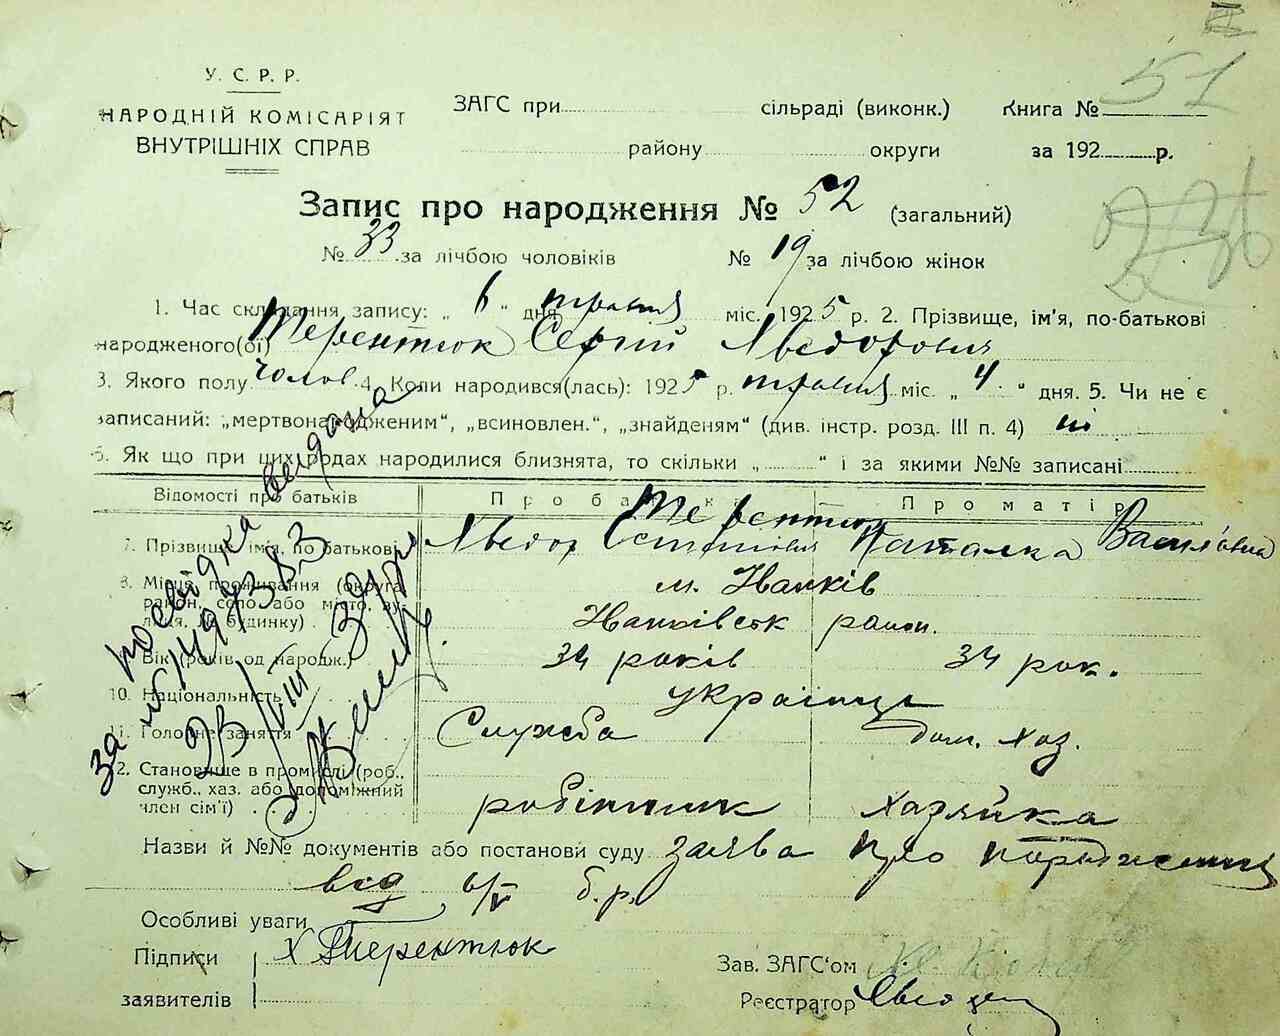 У. С. Р. Р.
НАРОДНІЙ КОМІСАРІЯТ
ВНУТРІШНІХ СПРАВ
ЗАГС при сільраді (виконк.) Книга № 51
району округи за 192 р.
Запис про народження № 52 (загальний)
№ 33 за лічбою чоловіків № 19 за лічбою жінок
1. Час складання запису: „ 6 “ дня травня міс. 1925 р. 2. Прізвище, ім'я, по-батькові
народженого(ої) Терентюк Сергій Хведорович
3. Якого полу чолов. 4. Коли народився(лась): 1925 р. травня міс. „ 4 “ дня. 5. Чи не є
записаний: „мертвонародженим“, „всиновлен.“, „знайденям“ (див. інстр. розд. III п. 4) ні
6. Як що при цих родах народилися близнята, то скільки „ “ і за якими №№ записані
Відомості про батьків Про батька Про матір
Терентюк
7. Прізвище, ім'я, по батькові Хведор Наталка Василівна
8. Місце проживання (округа, район, село або місто, вулиця, № будинку) м. Іванків
Іванківськ район.
Вік (років од народж.) 34 років 34 рок.
10. Національність українці
11. Головне заняття Служба дом. хаз.
12. Становище в промислі (роб., служб., хаз. або допоміжний член сім'ї) робітник хазяйка
Назви й №№ документів або постанови суду заява про народження
від 6/V б.р.
Особливі уваги
Підписи заявителів х Терентюк
Зав. ЗАГС'ом
Реєстратор
посвідка видана
за №